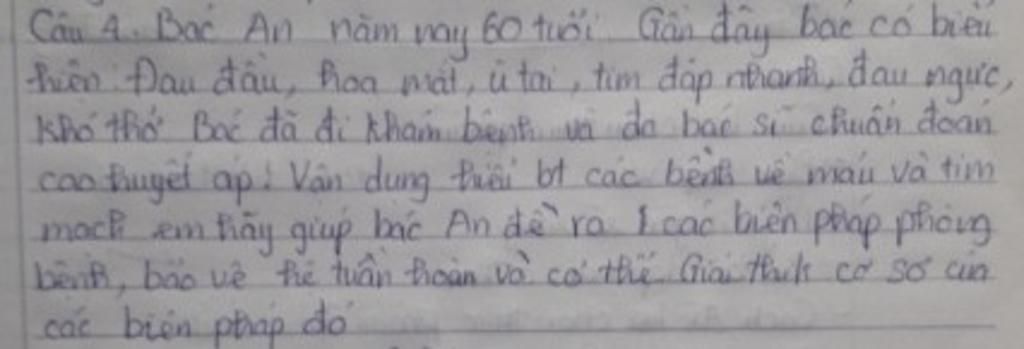 Câu 4. Bác An năm nay 60 tuổi Gần đây bác có biểu
hiện: Đau đầu, hoa mắt, ù tai, tim đập nhanh, đau ngực,
khó thở Bác đã đi khám bệnh và do bác sĩ chuẩn đoán
cao huyết áp! Vận dung hiểu bt các bệnh về máu và tim
mạch em hãy giúp bác An đề ra các biện pháp phòng
bệnh, bảo vệ hệ tuần hoàn và cơ thể Giải thích cơ sở của
các biện pháp đó